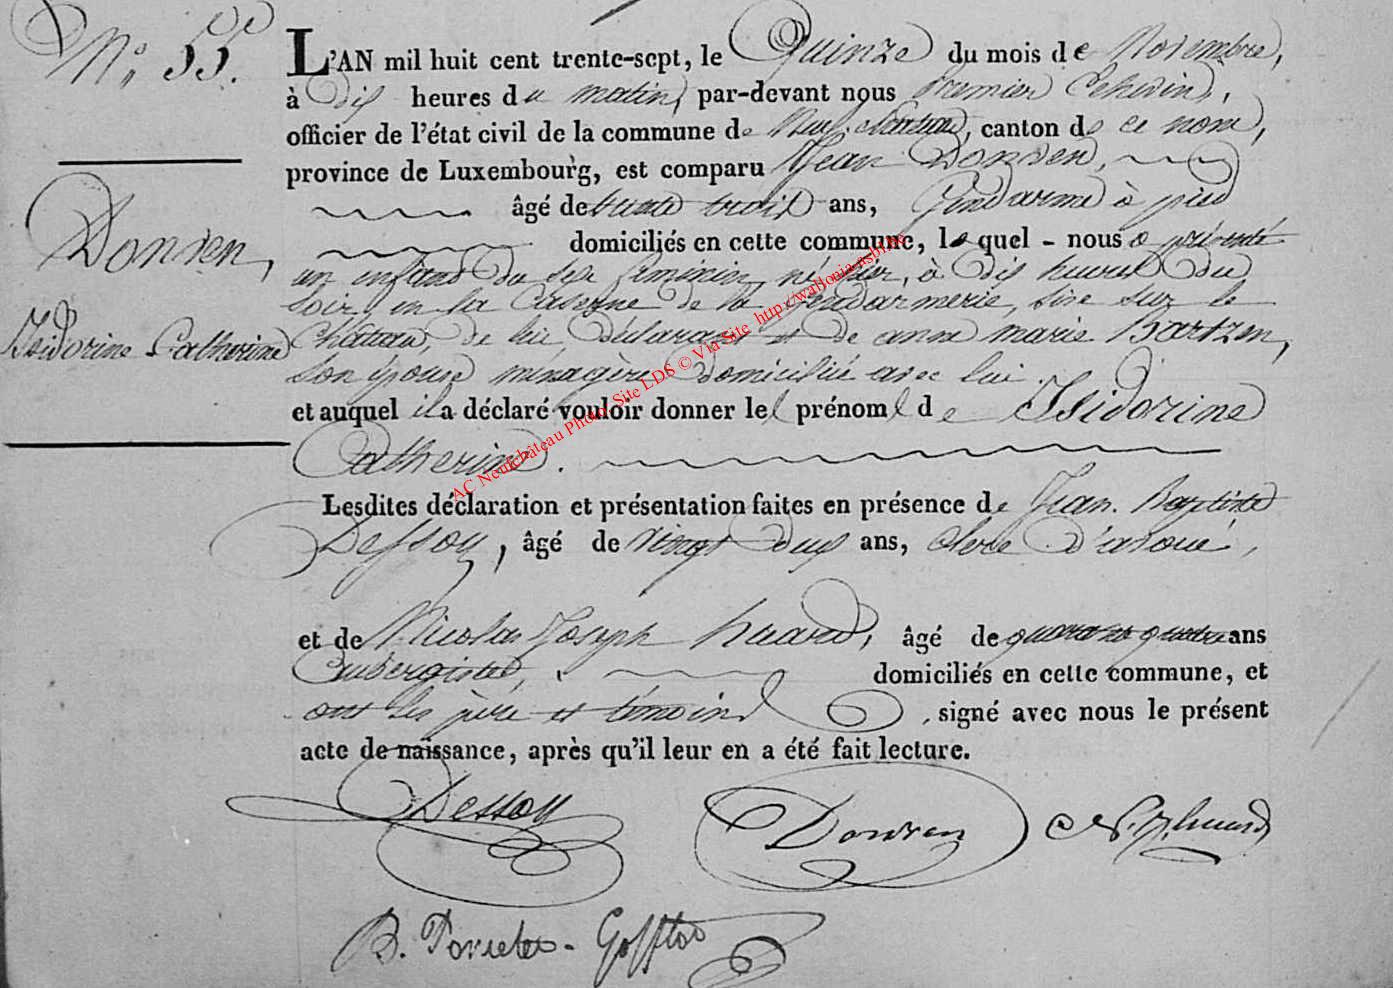 N° 55.
L'AN mil huit cent trente-sept, le Quinze du mois de Novembre,
à Dix heures du matin, par-devant nous Premier Echevin,
officier de l'état civil de la commune de Neufchateau, canton de ce nom,
province de Luxembourg, est comparu Jean Donven,
âgé de trente trois ans, Gendarme à pied
domiciliés en cette commune, lequel - nous a présenté
un enfant du sexe féminin, né hier, à dix heures du
soir, en la Caserne de la gendarmerie, sise sur le
Château, de lui déclarant et de anne marie Bartzen,
son épouse ménagère domiciliée avec lui
et auquel il a déclaré vouloir donner les prénoms de Isidorine
Catherine.
Donven,
Isidorine Catherine
Lesdites déclaration et présentation faites en présence de Jean Baptiste
Dessoy, âgé de vingt deux ans, clerc d'avoué,
et de Nicolas Joseph huard, âgé de quarante quatre ans
Aubergiste, domiciliés en cette commune, et
ont les père et témoins signé avec nous le présent
acte de naissance, après qu'il leur en a été fait lecture.
Dessoy Donven N. J. huard
B. Goffton
AC Neufchâteau Photo Site LDS © Via Site http://wallonia-asbl.be